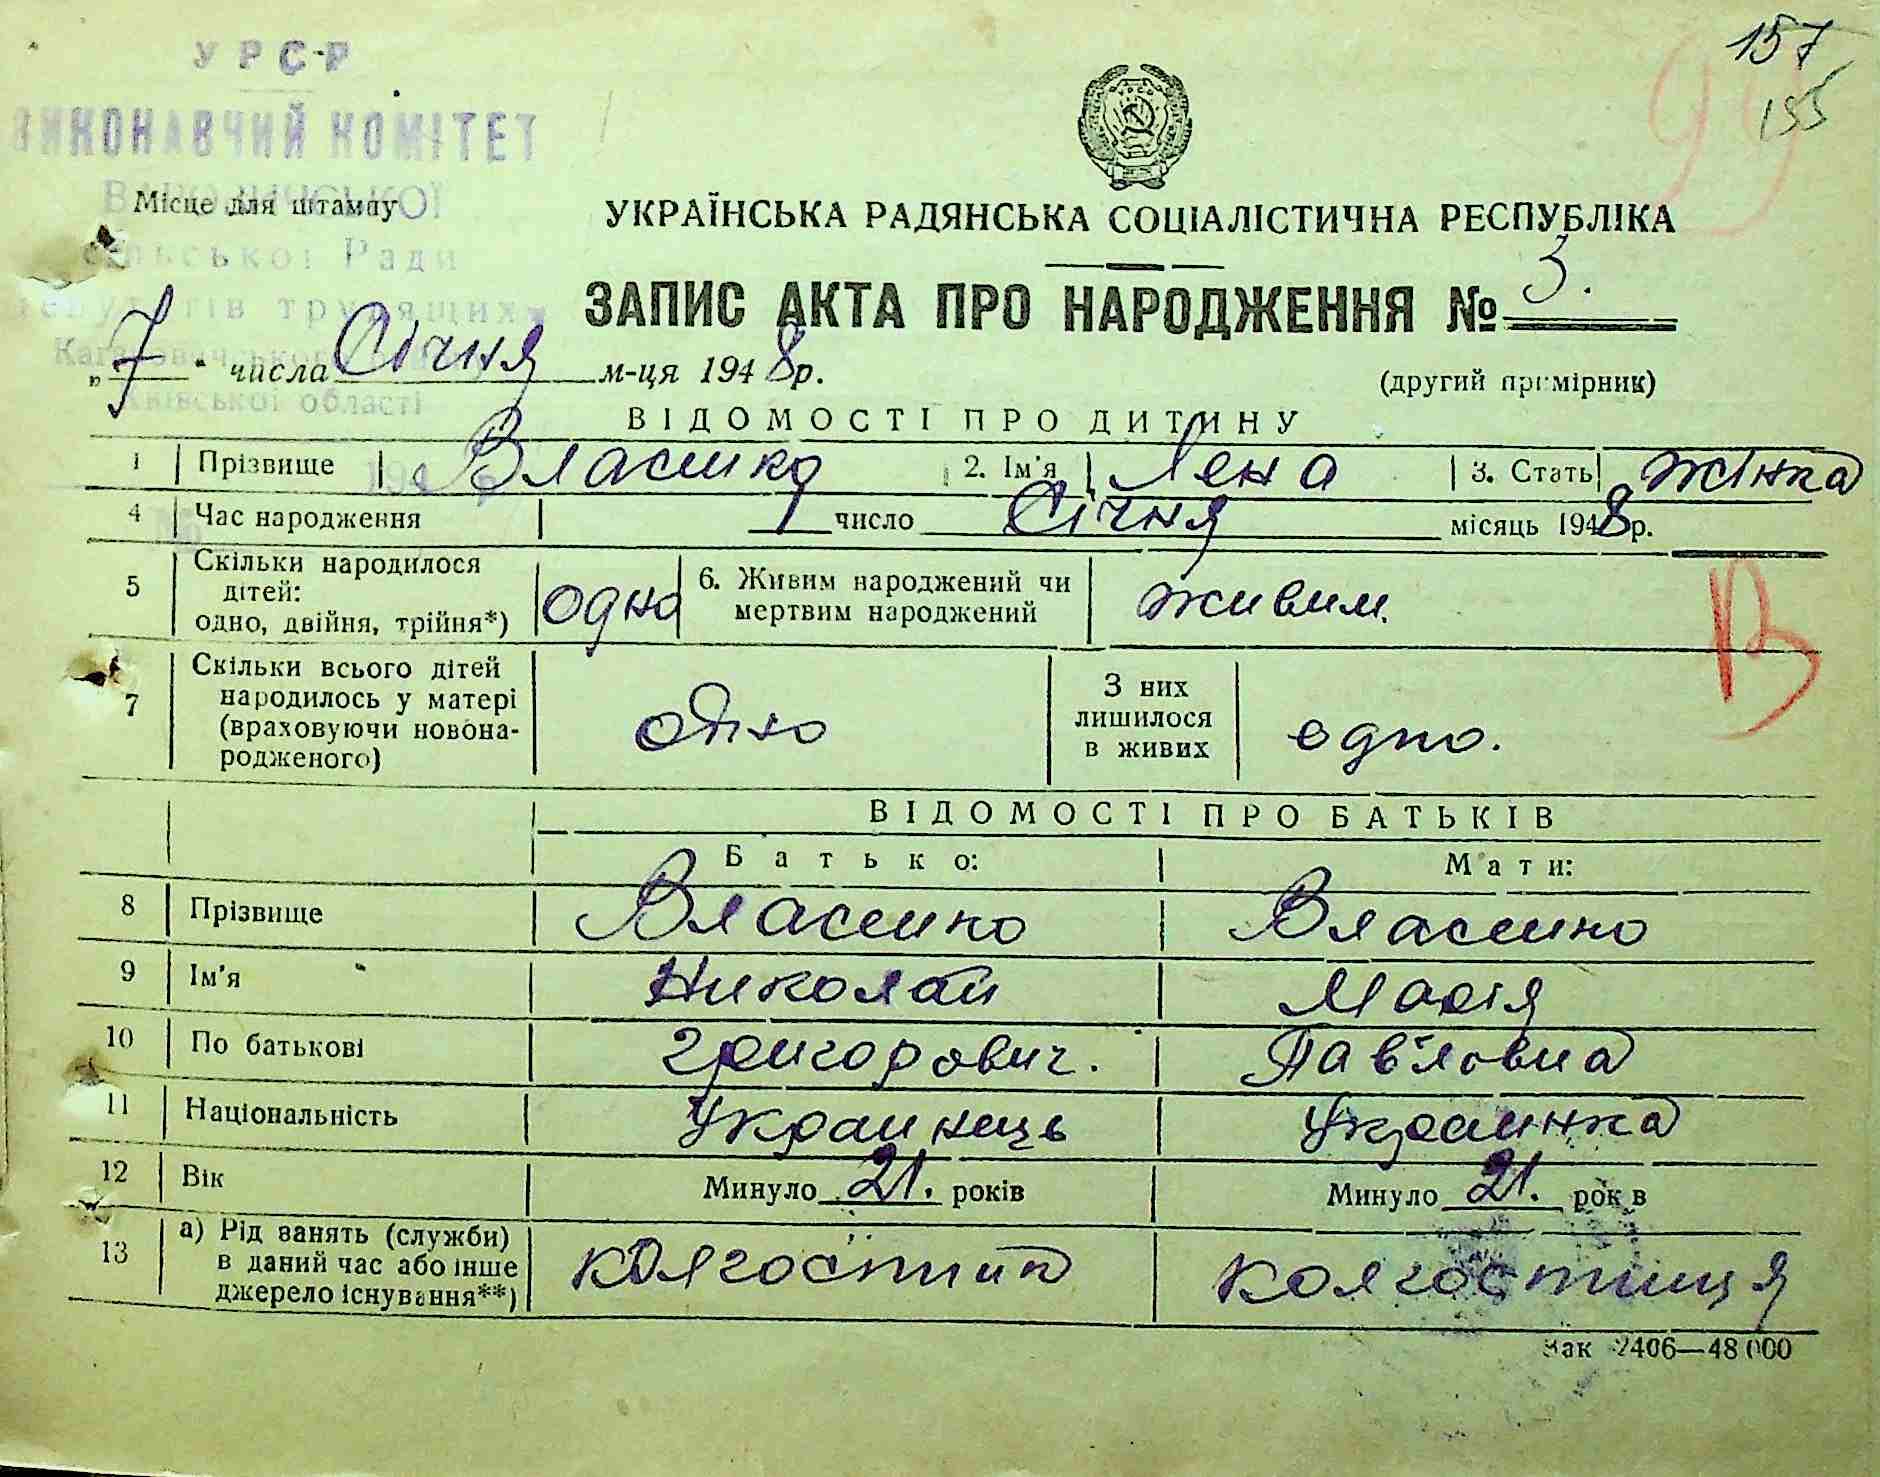 157
155
99
УРСР
ВИКОНАВЧИЙ КОМІТЕТ
Місце для штампу
сільської Ради
депутатів трудящих
Кагановичського
Київської області
194
УКРАЇНСЬКА РАДЯНСЬКА СОЦІАЛІСТИЧНА РЕСПУБЛІКА
ЗАПИС АКТА ПРО НАРОДЖЕННЯ № 3.
„7" числа Січня м-ця 1948р.
(другий примірник)
ВІДОМОСТІ ПРО ДИТИНУ
1 Прізвище Власенко 2. Ім'я Лена 3. Стать жінка
4 Час народження 1 число Січня місяць 1948р.
5 Скільки народилося дітей: одно, двійня, трійня*) одно 6. Живим народжений чи мертвим народжений живим.
В
7 Скільки всього дітей народилось у матері (враховуючи новонародженого) одно З них лишилося в живих одно.
ВІДОМОСТІ ПРО БАТЬКІВ
Батько: Мати:
8 Прізвище Власенко Власенко
9 Ім'я Николай Марія
10 По батькові Григорович. Пав'ловна
11 Національність Украинець Украинка
12 Вік Минуло 21. років Минуло 21. років
13 а) Рід занять (служби) в даний час або інше джерело існування**) колгоспник колгоспниця
Зак 2406—48 000